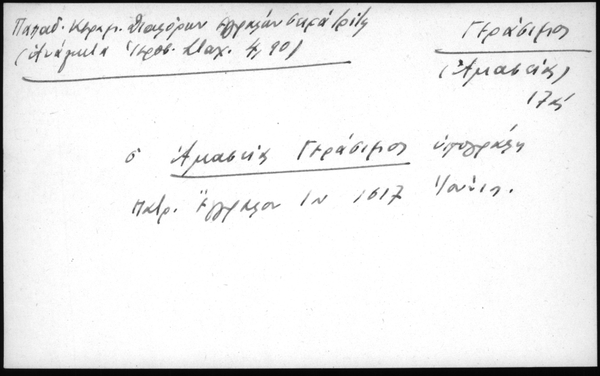 Παπαδ. Κεραμ. Διαφόρων ἐγγράφων
(Ἀνάλεκτα Ἱεροσ. Σταχ. 4, 90)
Γεράσιμος
(Ἀμασείας)
17ος
ὁ Ἀμασείας Γεράσιμος ὑπογράφει
πατρ. ἔγγραφον ἐν 1617